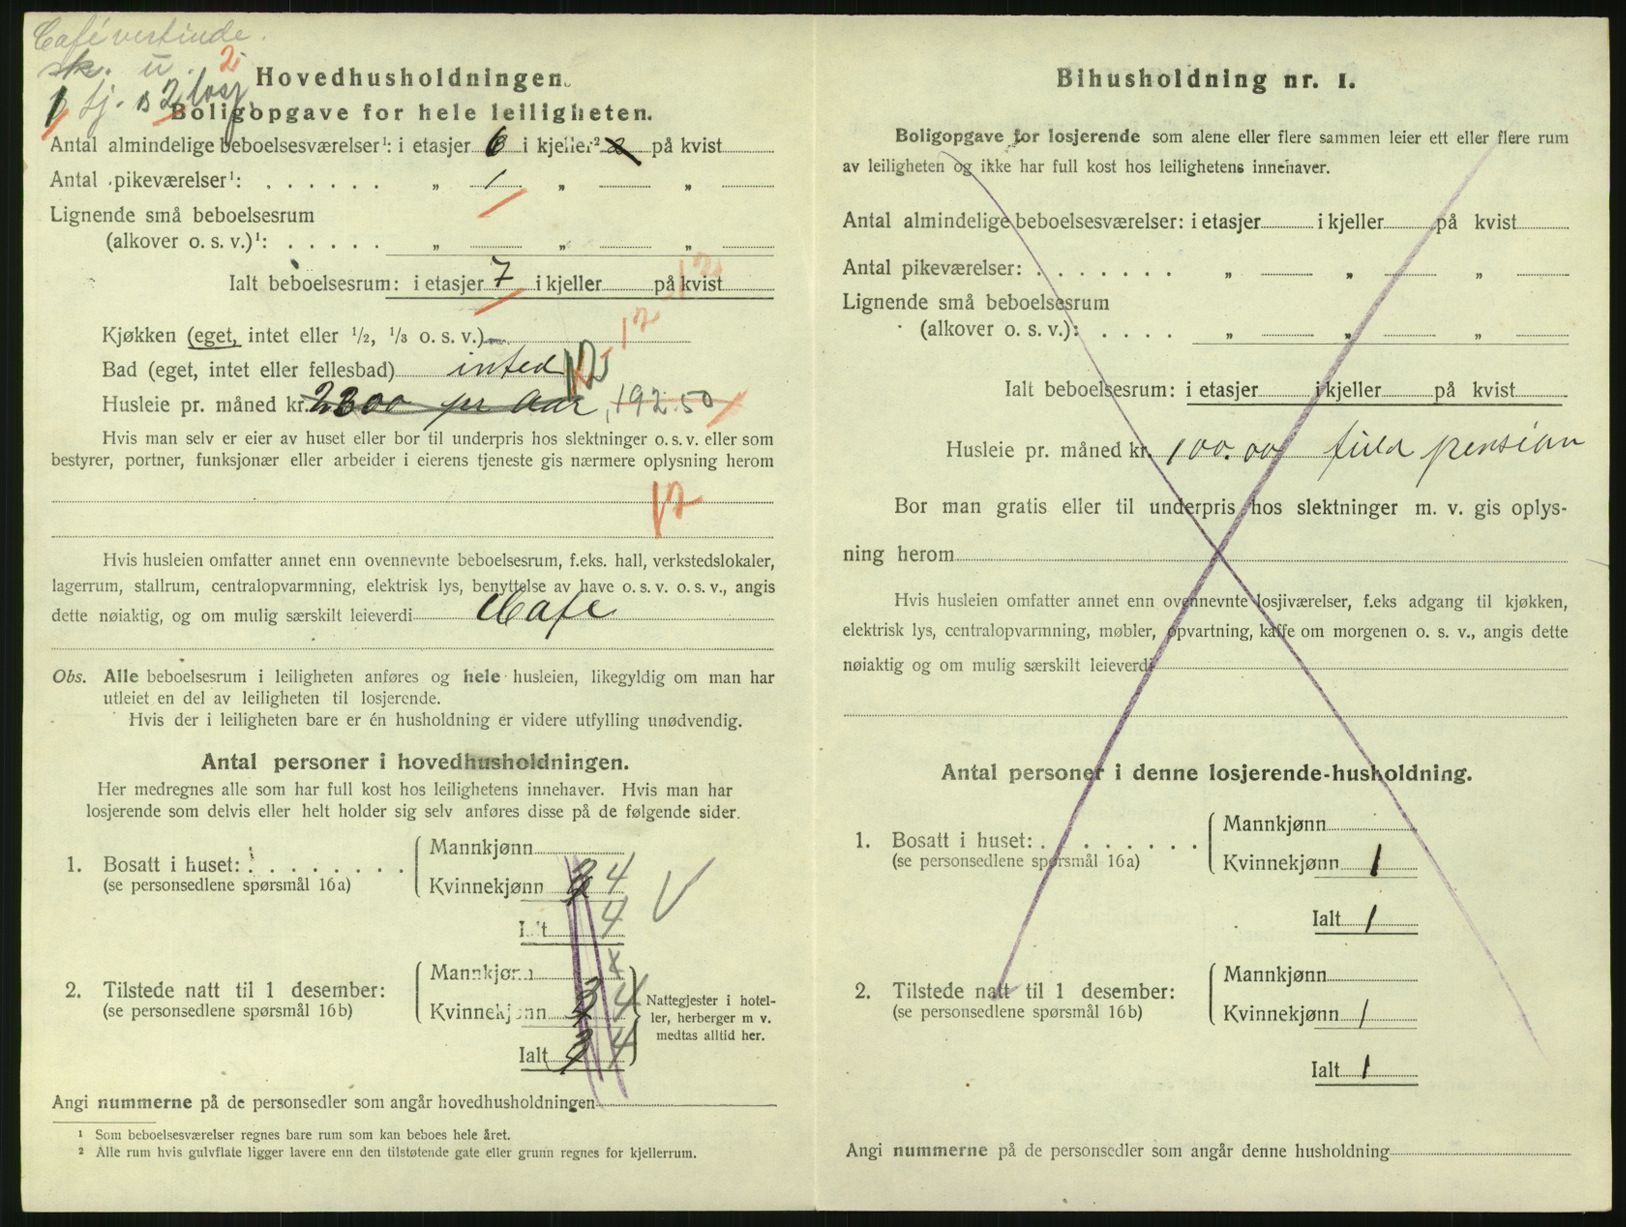 Cafévertinde.
sk. u. 2
1 tj. s 2 losj.
Hovedhusholdningen.
Boligopgave for hele leiligheten.
Antal almindelige beboelsesværelser¹: i etasjer 6 i kjeller² på kvist
Antal pikeværelser¹: . . . . . . „ 1 „ „
Lignende små beboelsesrum
(alkover o. s. v.)¹: . . . . . „ „ „
Ialt beboelsesrum: i etasjer 7 i kjeller på kvist 12
Kjøkken (eget, intet eller 1/2, 1/3 o. s. v.) 12
Bad (eget, intet eller fellesbad) inted 12
Husleie pr. måned kr. 2300 pr Aar, 192.50
Hvis man selv er eier av huset eller bor til underpris hos slektninger o. s. v. eller som
bestyrer, portner, funksjonær eller arbeider i eierens tjeneste gis nærmere oplysning herom
12
Hvis husleien omfatter annet enn ovennevnte beboelsesrum, f.eks. hall, verkstedslokaler,
lagerrum, stallrum, centralopvarmning, elektrisk lys, benyttelse av have o. s. v. o. s. v., angis
dette nøiaktig, og om mulig særskilt leieverdi Cafe
Obs. Alle beboelsesrum i leiligheten anføres og hele husleien, likegyldig om man har
utleiet en del av leiligheten til losjerende.
Hvis der i leiligheten bare er én husholdning er videre utfylling unødvendig.
Antal personer i hovedhusholdningen.
Her medregnes alle som har full kost hos leilighetens innehaver. Hvis man har
losjerende som delvis eller helt holder sig selv anføres disse på de følgende sider.
1. Bosatt i huset: . . . . . . . .
(se personsedlene spørsmål 16a)
Mannkjønn
Kvinnekjønn 3 4
Ialt 4
2. Tilstede natt til 1 desember:
(se personsedlene spørsmål 16b)
Mannkjønn x
Kvinnekjønn 3 4
Ialt 3 4
Nattegjester i hotel-
ler, herberger m v.
medtas alltid her.
Angi nummerne på de personsedler som angår hovedhusholdningen
¹ Som beboelsesværelser regnes bare rum som kan beboes hele året.
² Alle rum hvis gulvflate ligger lavere enn den tilstøtende gate eller grunn regnes for kjellerrum.
Bihusholdning nr. 1.
Boligopgave for losjerende som alene eller flere sammen leier ett eller flere rum
av leiligheten og ikke har full kost hos leilighetens innehaver.
Antal almindelige beboelsesværelser: i etasjer i kjeller på kvist
Antal pikeværelser: . . . . . . . „ „ „
Lignende små beboelsesrum
(alkover o. s. v.): . . . . „ „ „
Ialt beboelsesrum: i etasjer i kjeller på kvist
Husleie pr. måned kr. 100.00 fuld pension
Bor man gratis eller til underpris hos slektninger m. v. gis oplys-
ning herom
Hvis husleien omfatter annet enn ovennevnte losjiværelser, f.eks adgang til kjøkken,
elektrisk lys, centralopvarmning, møbler, opvartning, kaffe om morgenen o. s. v., angis dette
nøiaktig og om mulig særskilt leieverdi
Antal personer i denne losjerende-husholdning.
1. Bosatt i huset: . . . . . . . .
(se personsedlene spørsmål 16a)
Mannkjønn
Kvinnekjønn 1
Ialt 1
2. Tilstede natt til 1 desember:
(se personsedlene spørsmål 16b)
Mannkjønn
Kvinnekjønn 1
Ialt 1
Angi nummerne på de personsedler som angår denne husholdning